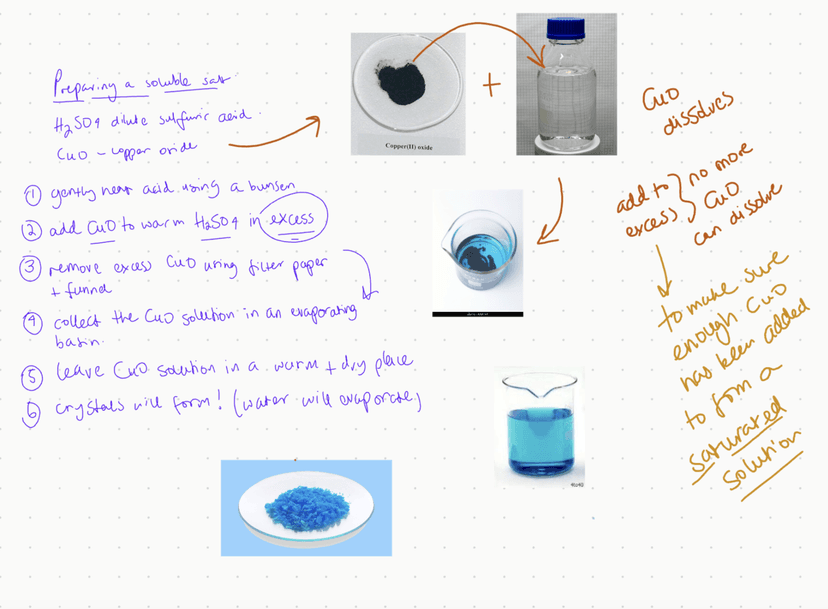 Preparing a soluble salt
H2SO4 dilute sulfuric acid
CuO - copper oxide
① gently heat acid using a bunsen
② add CuO to warm H2SO4 in excess
③ remove excess CuO using filter paper
+ funnel
④ collect the CuO solution in an evaporating
basin.
⑤ leave CuO solution in a warm + dry place
⑥ crystals will form! (water will evaporate)
Copper(II) oxide
+
CuO
dissolves
add to
excess
no more
CuO
can dissolve
to make sure
enough CuO
has been added
to form a
saturated
solution